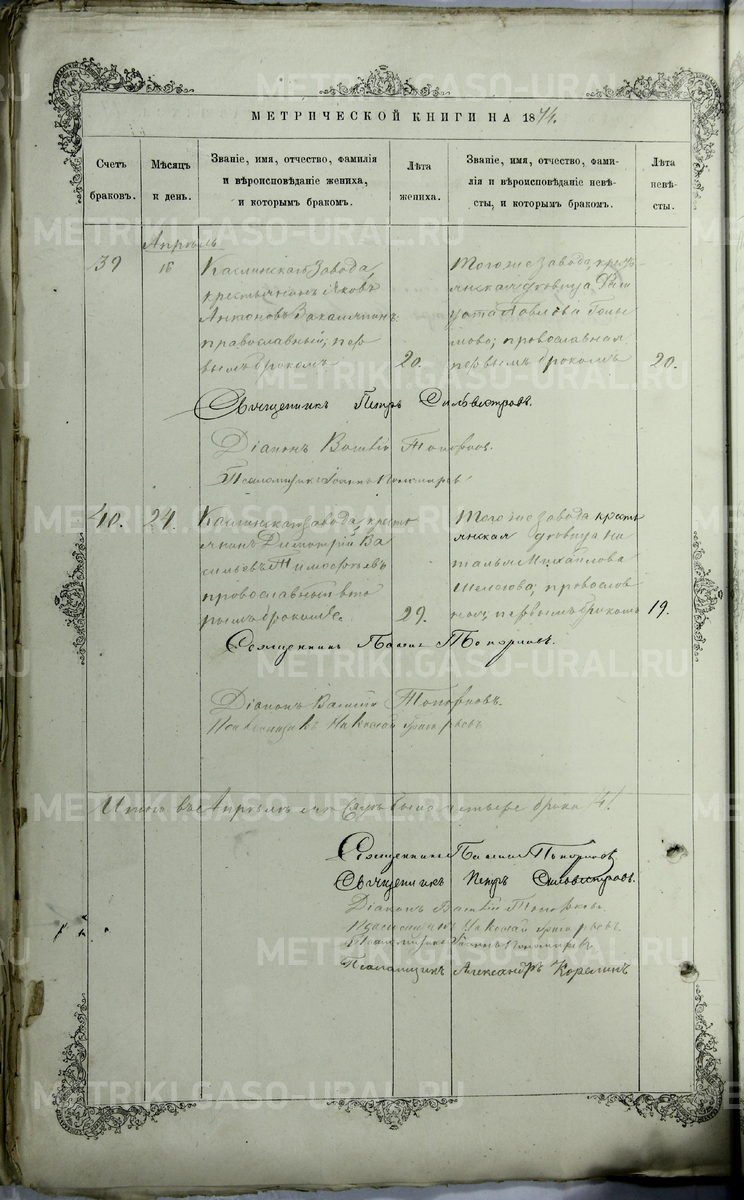 МЕТРИЧЕСКОЙ КНИГИ НА 1874.
Счетъ
браковъ.
Мѣсяцъ
и день.
Званіе, имя, отчество, фамилія
и вѣроисповѣданіе жениха,
и которымъ бракомъ.
Лѣта
жениха.
Званіе, имя, отчество, фами-
лія и вѣроисповѣданіе невѣ-
сты, и которымъ бракомъ.
Лѣта
невѣ-
сты.
Апрѣль
39
16
Каслинскаго Завода,
крестьянинъ Яковъ
Антоновъ
православный, пер
вымъ бракомъ
20.
Тогоже завода, кресть
янская дѣвица
православная
первымъ бракомъ
20.
Священникъ Петръ Сильвестровъ.
Діаконъ Василій Топорковъ.
Псаломщикъ Іоаннъ Пономаревъ
40.
24.
Каслинскаго завода, кресть
янинъ Димитрій Ва
сильевъ Тимофѣевъ
православный вто
рымъ бракомъ.
29.
Тогоже завода кресть
янская дѣвица На
талья Михайлова
православ
ная, первымъ бракомъ
19.
Священникъ Павелъ Топорковъ.
Діаконъ Василій Топорковъ.
Псаломщикъ Николай Григорьевъ
Итого въ Апрѣлѣ мцѣ четыре брака /4/
Священникъ Павелъ Топорковъ
Священникъ Петръ Сильвестровъ.
Діаконъ Василій Топорковъ.
Псаломщикъ Николай Григорьевъ.
Псаломщикъ Іоаннъ Пономаревъ
Псаломщикъ Александръ Корелинъ
METRIKI.GASO-URAL.RU